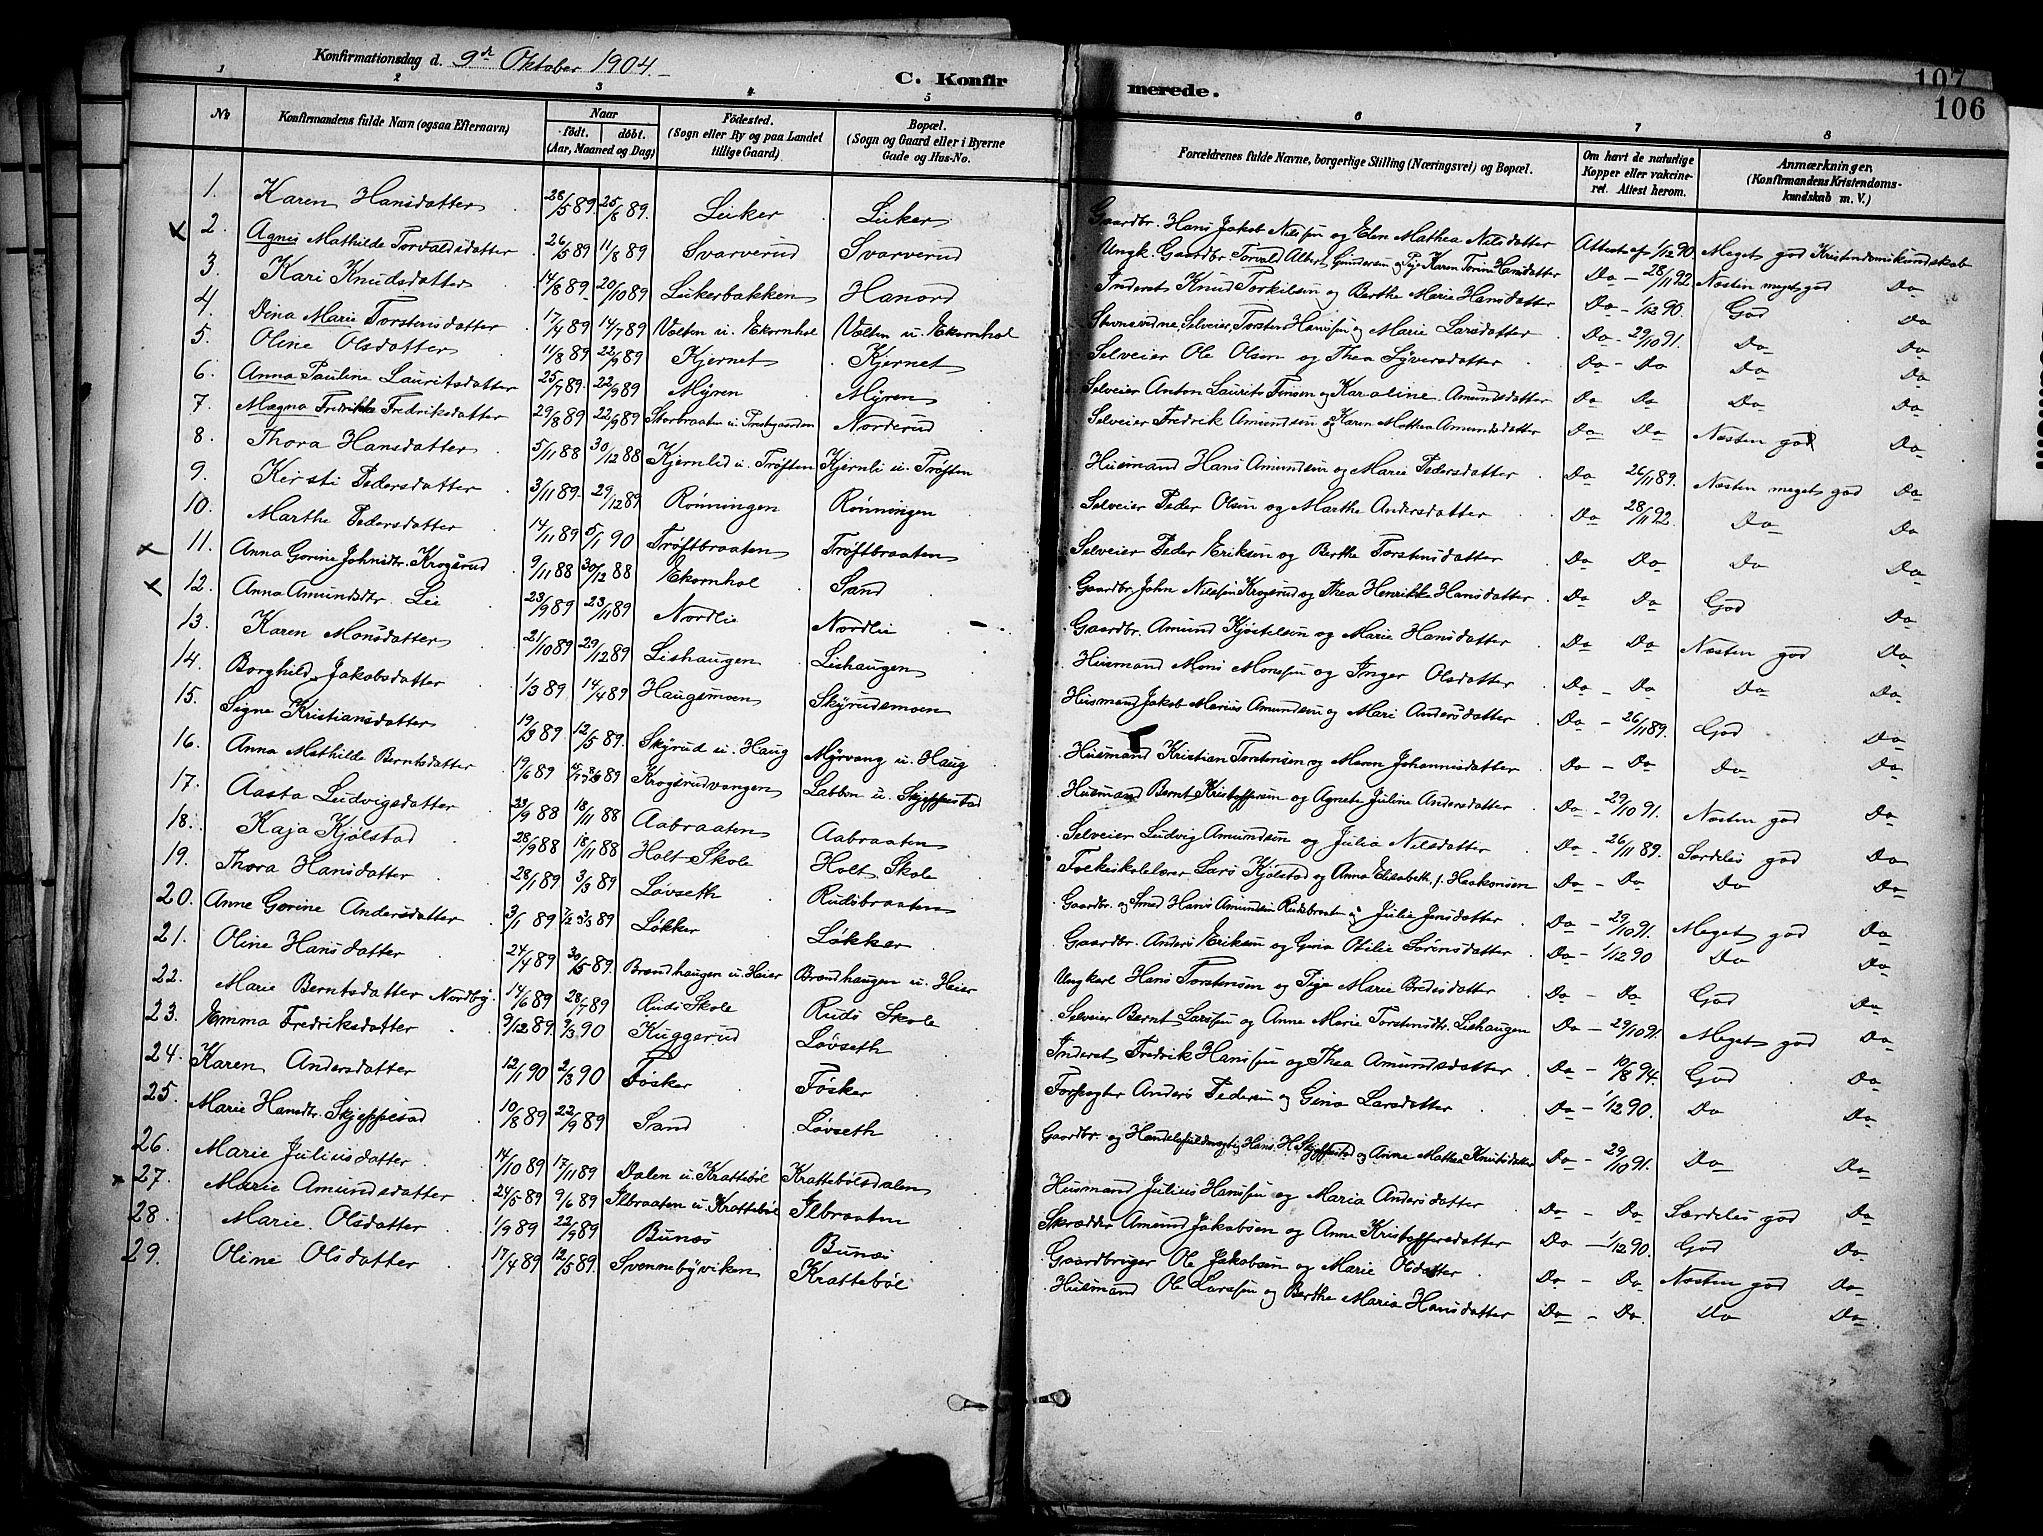 Konfirmationsdag d. 9de Oktober 1904.
C. Konfirmerede.
107
106
1 2 3 4 5 6 7 8
No
Konfirmandens fulde Navn (ogsaa Efternavn)
Naar
født. døbt.
(Aar, Maaned og Dag)
Fødested.
(Sogn eller By og paa Landet
tillige Gaard)
Bopæl.
(Sogn og Gaard eller i Byerne
Gade og Hus-No.
Forældrenes fulde Navne, borgerlige Stilling (Næringsvei) og Bopæl.
Om havt de naturlige
Kopper eller vakcine-
ret. Attest herom.
Anmærkninger
(Konfirmandens Kristendoms-
kundskab m. V.)
1. Karen Hansdatter 28/5 89 25/8 89. Lüker Lüker Gaardbr. Hans Jakob Nilssen og Elen Mathea Nilsdatter Attest af 1/12 90 Meget god Kristendomskundskab
2. Agnes Mathilde Torvaldsdatter 26/5 89 11/8 89 Svarverud Svarverud Ungk. Gaardbr. Torvald Albert Gundersen og Pige Karen Torine Hansdatter Do - 28/11 92. Næsten meget god Do
3. Kari Knudsdatter 14/8 89 20/10 89 Lükerbakken Hanord Inderst Knud Torkilsen og Berthe Marie Hansdatter Do - 1/12 90. God Do
4. Dina Marie Torstensdatter 17/4 89 14/7 89 Volten u. Ekornhol Volten u. Ekornhol Selveier Torsten Hanssen og Marie Larsdatter Do - 29/10 91. Do Do
5. Oline Olsdatter 11/8 89 22/9 89 Kjernet Kjernet Selveier Ole Olsen og Thea Syversdatter Do - Do Do Do
6. Anna Pauline Lauritsdatter 25/7 89. 22/9 89 Myren Myren Selveier Anton Laurits Tonsen og Karoline Amundsdatter Do Do Do Do
7. Magna Fredrikke Fredriksdatter 29/8 89 22/9 89 Storbraaten u. Prestegaarden Norderud Selveier Fredrik Amundsen og Karen Mathea Amundsdatter Do Do Næsten god Do
8. Thora Hansdatter 5/11 88 30/12 88 Kjernlid u. Trøften Kjernli u. Trøften Husmand Hans Amundsen og Marie Pedersdatter Do 26/11 89. Næsten meget god Do
9. Kirsti Pedersdatter 3/11 89. 29/12 89 Rønningen Rønningen Selveier Peder Olsen og Marthe Andersdatter Do 28/11 92. Do Do
10. Marthe Pedersdatter 14/11 89 5/1 90 Trøftbraaten Trøftbraaten Selveier Peder Eriksen og Berthe Torstensdatter Do Do Do Do
11. Anna Gorine Johnsdtr. Krogsrud 9/11 88 30/12 88 Ekornhol Sand Gaardbr John Nilssen Krogsrud og Thea Henrikke Hansdatter Do Do God Do
12. Anna Amundsdtr. Lie 23/9 89 23/11 89 Nordlie Nordlie Gaardbr. Amund Kjostelsen og Marie Hansdatter Do Do Næsten god Do
13. Karen Monsdatter 21/10 89 29/12 89 Lishaugen Lishaugen Husmand Mons Monssen og Inger Olsdatter Do - Do Do Do
14. Borghild Jakobsdatter 1/3 89 14/4 89 Haugsmoen Skyrudsmoen Husmand Jakob Marius Amundsen og Mari Andersdatter Do - 26/11 89. God Do
15. Signe Kristiansdatter 19/3 89 12/5 89. Skyrud u. Haug Myrvang u. Haug Husmand Kristian Torstensen og Maren Johannisdatter Do - Do Do Do
16. Anna Mathilde Berntsdatter 19/6 89 89 Krogsrudvangen Labbon u. Skjeppestad Husmand Bernt Kristoffersen og Agnete Juline Andersdatter Do - 29/10 91. Næsten god Do
17. Aasta Ludvigsdatter 23/9 88 18/11 88 Aabraaten Aabraaten Selveier Ludvig Amundsen og Julia Nilsdatter Do - 26/11 89. Særdeles god Do
18. Kaja Kjølstad 28/9 88 18/11 88 Holt Skole Holt Skole Folkeskolelærer Lars Kjølstad og Anna Elisabeth f. Haakonsen Do - Do Do Do
19. Thora Hansdatter 28/1 89 3/3 89 Løvseth Rudsbraaten Gaardbr. og Smed Hans Amundsen Rudsbraaten og Julie Jensdatter Do - 29/10 91. Meget god Do
20. Anne Gorine Andersdatter 3/1 89 7/2 3/3 89 Løkker Løkker Gaardbr. Anders Eriksen og Gina Otilie Sørensdatter Do - 1/12 90 Do Do
21. Oline Hansdatter 24/4 89 30/5 89. Brændhaugen u. Heier Brændhaugen u. Heier Ungkarl Hans Torstensen og Pige Marie Bredesdatter Do - Do God Do
22. Marie Berntsdatter Nordby. 14/6 89 28/7 89 Ruds Skole Ruds Skole Selveier Bernt Larssen og Anne Marie Torstensdtr. Lishaugen Do - 29/10 91. Meget god Do
23. Emma Fredriksdatter 9/12 89. 9/3 90 Kuggerud Løvseth Inderst Fredrik Hanssen og Thea Amundsdatter Do - 10/8 94. God Do
24. Karen Andersdatter 12/1 90 2/3 90 Føsker Føsker Forpagter Anders Pedersen og Gina Larsdatter Do - 1/12 90. Do Do
25. Marie Hansdtr. Skjeppestad 10/8 89 22/9 89 Sand Løvseth Gaardbr. og Handelsfuldmægtig Hans H. Skjeppestad og Anne Mathea Knutsdatter Do - 29/10 91. Do Do
26. Marie Juliusdatter 14/10 89 17/11 89 Dalen u. Krattebøl Krattebølsdalen Husmand Julius Hanssen og Maria Andersdatter Do - Do Særdeles god Do
27. Marie Amundsdatter 24/5 89 9/6 89 Ilbraaten u. Krattebøl Ilbraaten Skrædder Amund Jakobsen og Anne Kristoffersdatter Do - 1/12 90. God Do
28. Marie Olsdatter 1/9 89 22/9 89 Bunæs Bunæs Gaardbruger Ole Jakobsen og Marie Olsdatter Do - Do Næsten god Do
29. Oline Olsdatter 17/4 89 12/5 89. Svennebyviken Krattebøl Husmand Ole Larssen og Berthe Maria Hansdatter Do - Do Do Do